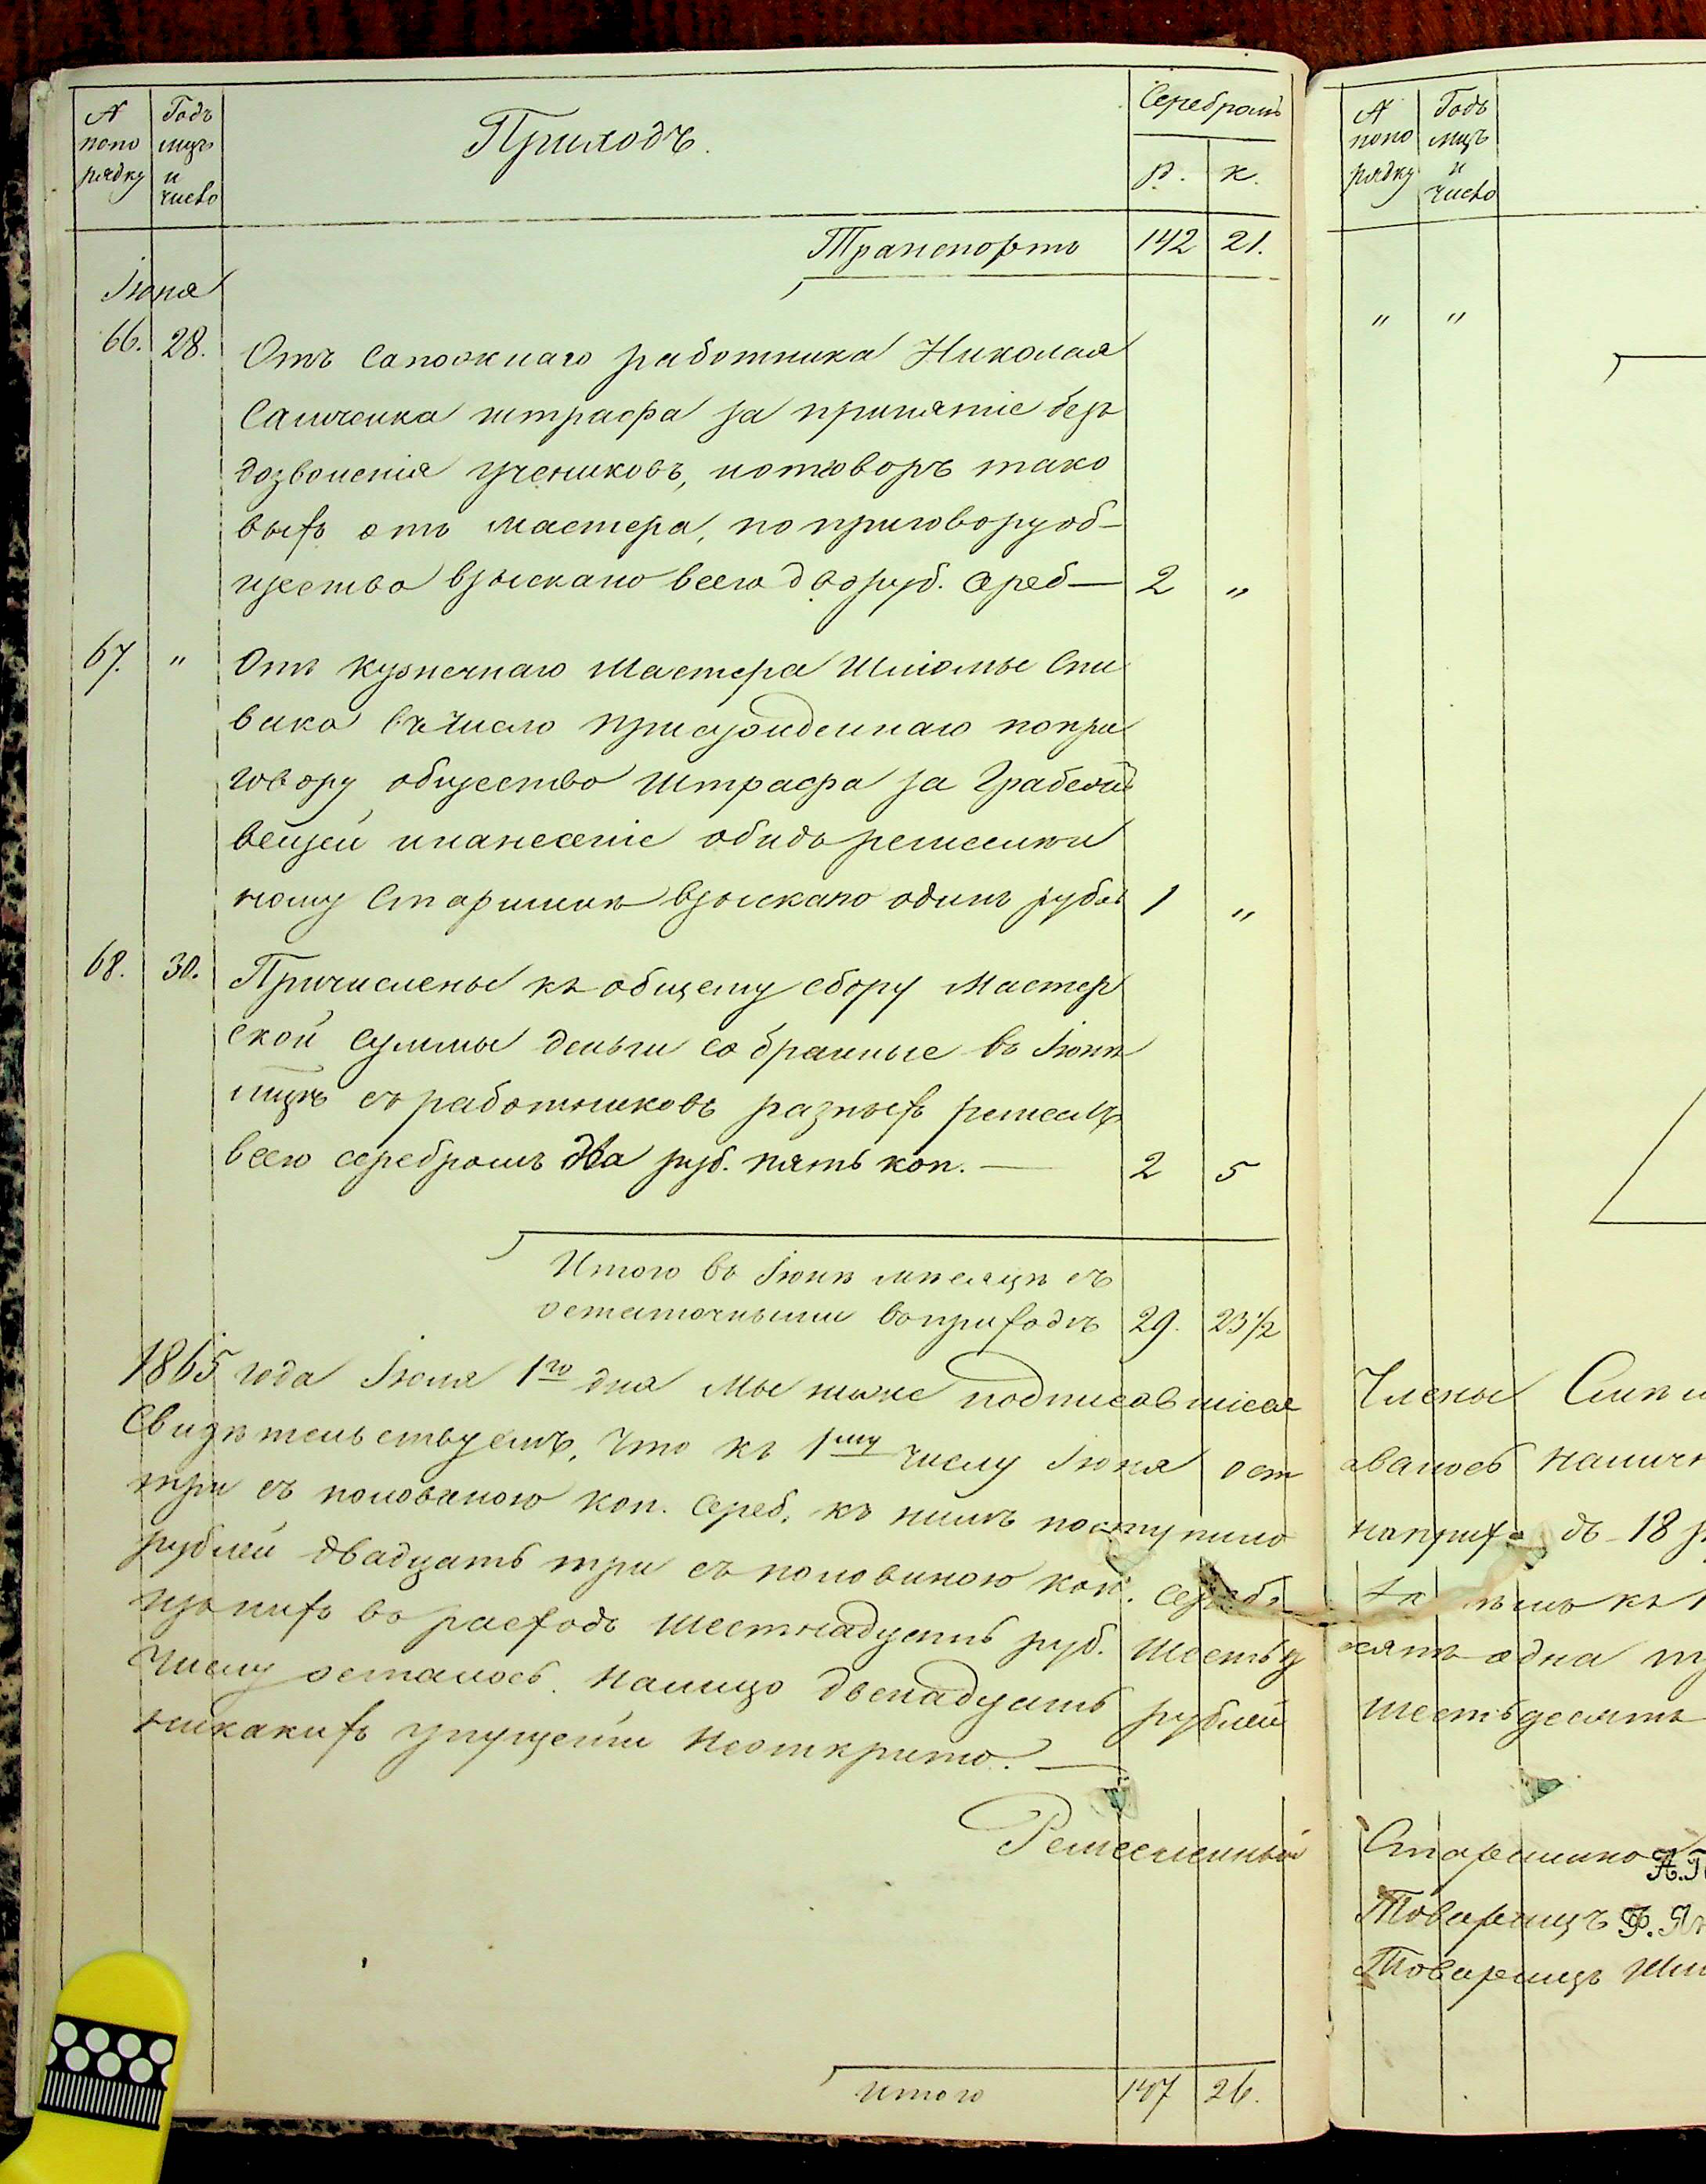 № Годъ Приходъ. Серебромъ
попо мцъ
рядку и р. к.
число
Транспортъ 142 21.
Іюня
66. 28. Отъ Сапожнаго работника Николая
Самченка штрафа за принятіе безъ
дозволенія учениковъ, и отговоръ тако
выхъ отъ мастера, по приговору об-
щества взыскано всего два руб. Сереб — 2 „
67. „ Отъ кузнечнаго Мастера Шліомы Спи
вака въ число присужденнаго попри
говору общество Штрафа за Грабежъ
вещей инанесеніе обидъ ремеслен
ному Старшинѣ взыскано одинъ рубль 1 „
68. 30. Причислены къ общему сбору Мастер
ской Суммы деньги собранные въ Іюнѣ
мцѣ съ работниковъ разныхъ ремеслъ
всего серебромъ два руб. пять коп. — 2 5
Итого въ Іюнѣ мѣсяцѣ съ
остаточными въ приходѣ 29. 23 1/2
1865 года Іюля 1го дня Мы ниже подписавшіеся
Свидѣтельствуемъ, Что къ 1му Числу Іюня ост
три съ половиною коп. Сереб. къ нимъ поступило
рублей двадцать три съ половиною коп. Сереб.
изъ нихъ въ расходъ Шестнадцать руб. Шестьд
Числу осталось Налицо двенадцать рублей
никакихъ упущеній Неоткрито. —
Ремесленный
Итого 147 26.
№ Годъ
попо мцъ
рядку и
число
„ „
Члены
авалось Налич
наприходъ 18
къ 1
сять одна
Шестьдесять
Старшина А.
Товарищъ Ф.
Товарищъ